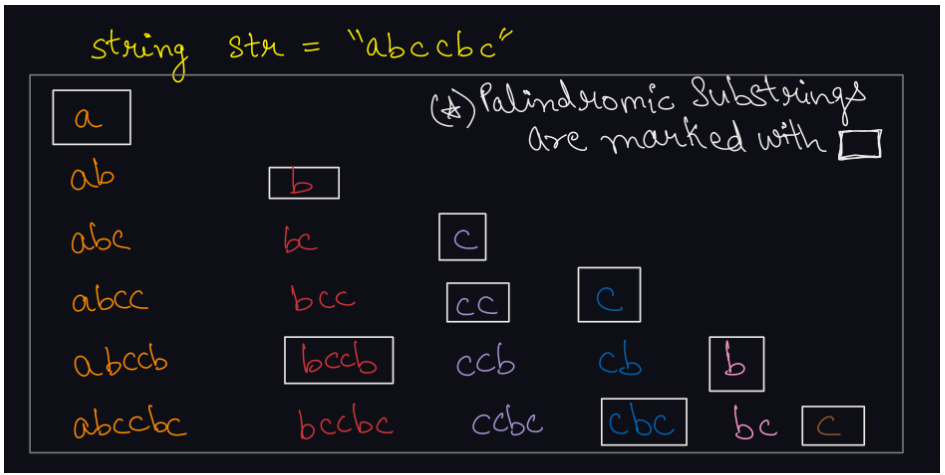 string str = "abccbc"
(*) Palindromic Substrings
are marked with
a
ab b
abc bc c
abcc bcc cc c
abccb bccb ccb cb b
abccbc bccbc ccbc cbc bc c